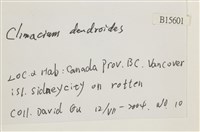 B15601
Climacium dendroides
Loc & Hab: Canada Prov. BC. Vancover
isl. sidney city on rotten
Coll. David Gu 12/VII-2004. No 10